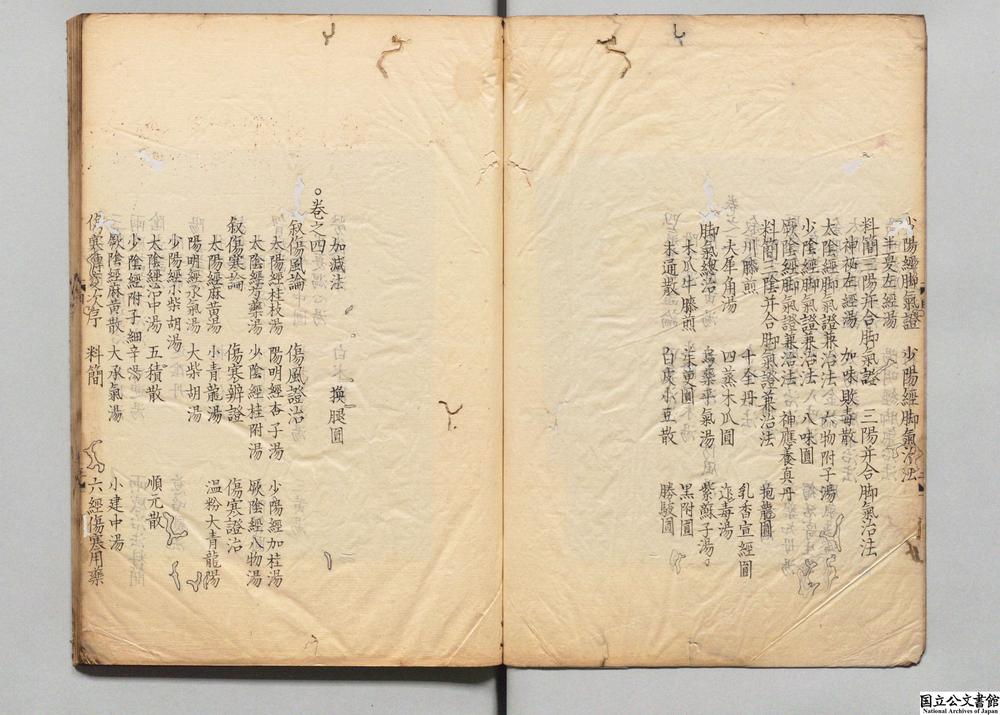 少陽經脚氣證　少陽經脚氣治法
半夏左經湯
料簡三陽并合脚氣證　三陽并合脚氣治法
大神秘左經湯　加味敗毒散
太陰經脚氣證兼治法　六物附子湯
少陰經脚氣證兼治法　八味圓
厥陰經脚氣證兼治法　神應養真丹
料簡三陰并合脚氣證兼治法　抱龍圓
川膝煎　十全丹　乳香宣經圓
大犀角湯　四蒸木瓜圓
脚氣總治　烏藥平氣湯　紫蘇子湯
木瓜牛膝煎　茱萸圓　黑附圓
木通散　白皮小豆散　勝駿圓
加減法　換腿圓
○卷之四
叙傷風論　傷風證治
太陽經桂枝湯　陽明經杏子湯　少陽經加桂湯
太陰經芍藥湯　少陰經桂附湯　厥陰經八物湯
叙傷寒論　傷寒辨證　傷寒證治
太陽經麻黄湯　小青龍湯　温粉大青龍湯
陽明經承氣湯　大柴胡湯
少陽經小柴胡湯
太陰經治中湯　五積散　順元散
少陰經附子細辛湯
厥陰經麻黄散　大承氣湯　小建中湯
傷寒傳變次序　料簡　六經傷寒用藥
国立公文書館
National Archives of Japan